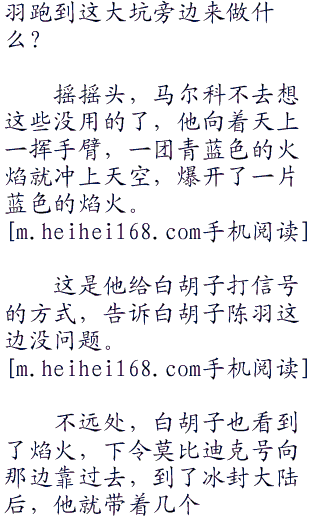 羽跑到这大坑旁边来做什
么？
摇摇头，马尔科不去想
这些没用的了，他向着天上
一挥手臂，一团青蓝色的火
焰就冲上天空，爆开了一片
蓝色的焰火。
[m.heihei168.com手机阅读]
这是他给白胡子打信号
的方式，告诉白胡子陈羽这
边没问题。
[m.heihei168.com手机阅读]
不远处，白胡子也看到
了焰火，下令莫比迪克号向
那边靠过去，到了冰封大陆
后，他就带着几个